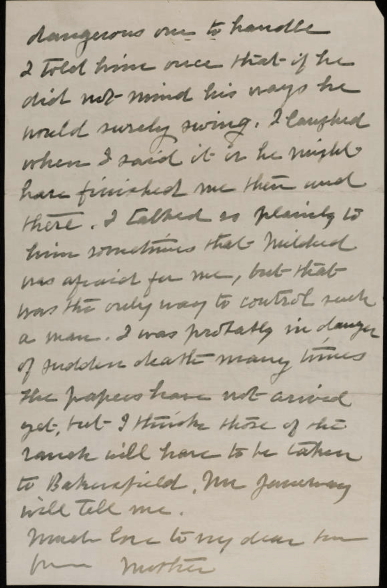 dangerous one to handle
I told him once that if he
did not mind his ways he
would surely swing. I laughed
when I said it or he might
have finished me then and
there. I talked so plainly to
him sometimes that Mildred
was afraid for me, but that
was the only way to control such
a man. I was probably in danger
of sudden death many times
the papers have not arived
yet, but I think those of the
ranch will have to be taken
to Bakersfield. Mr Janeway
will tell me.
Much love to my dear son
from Mother